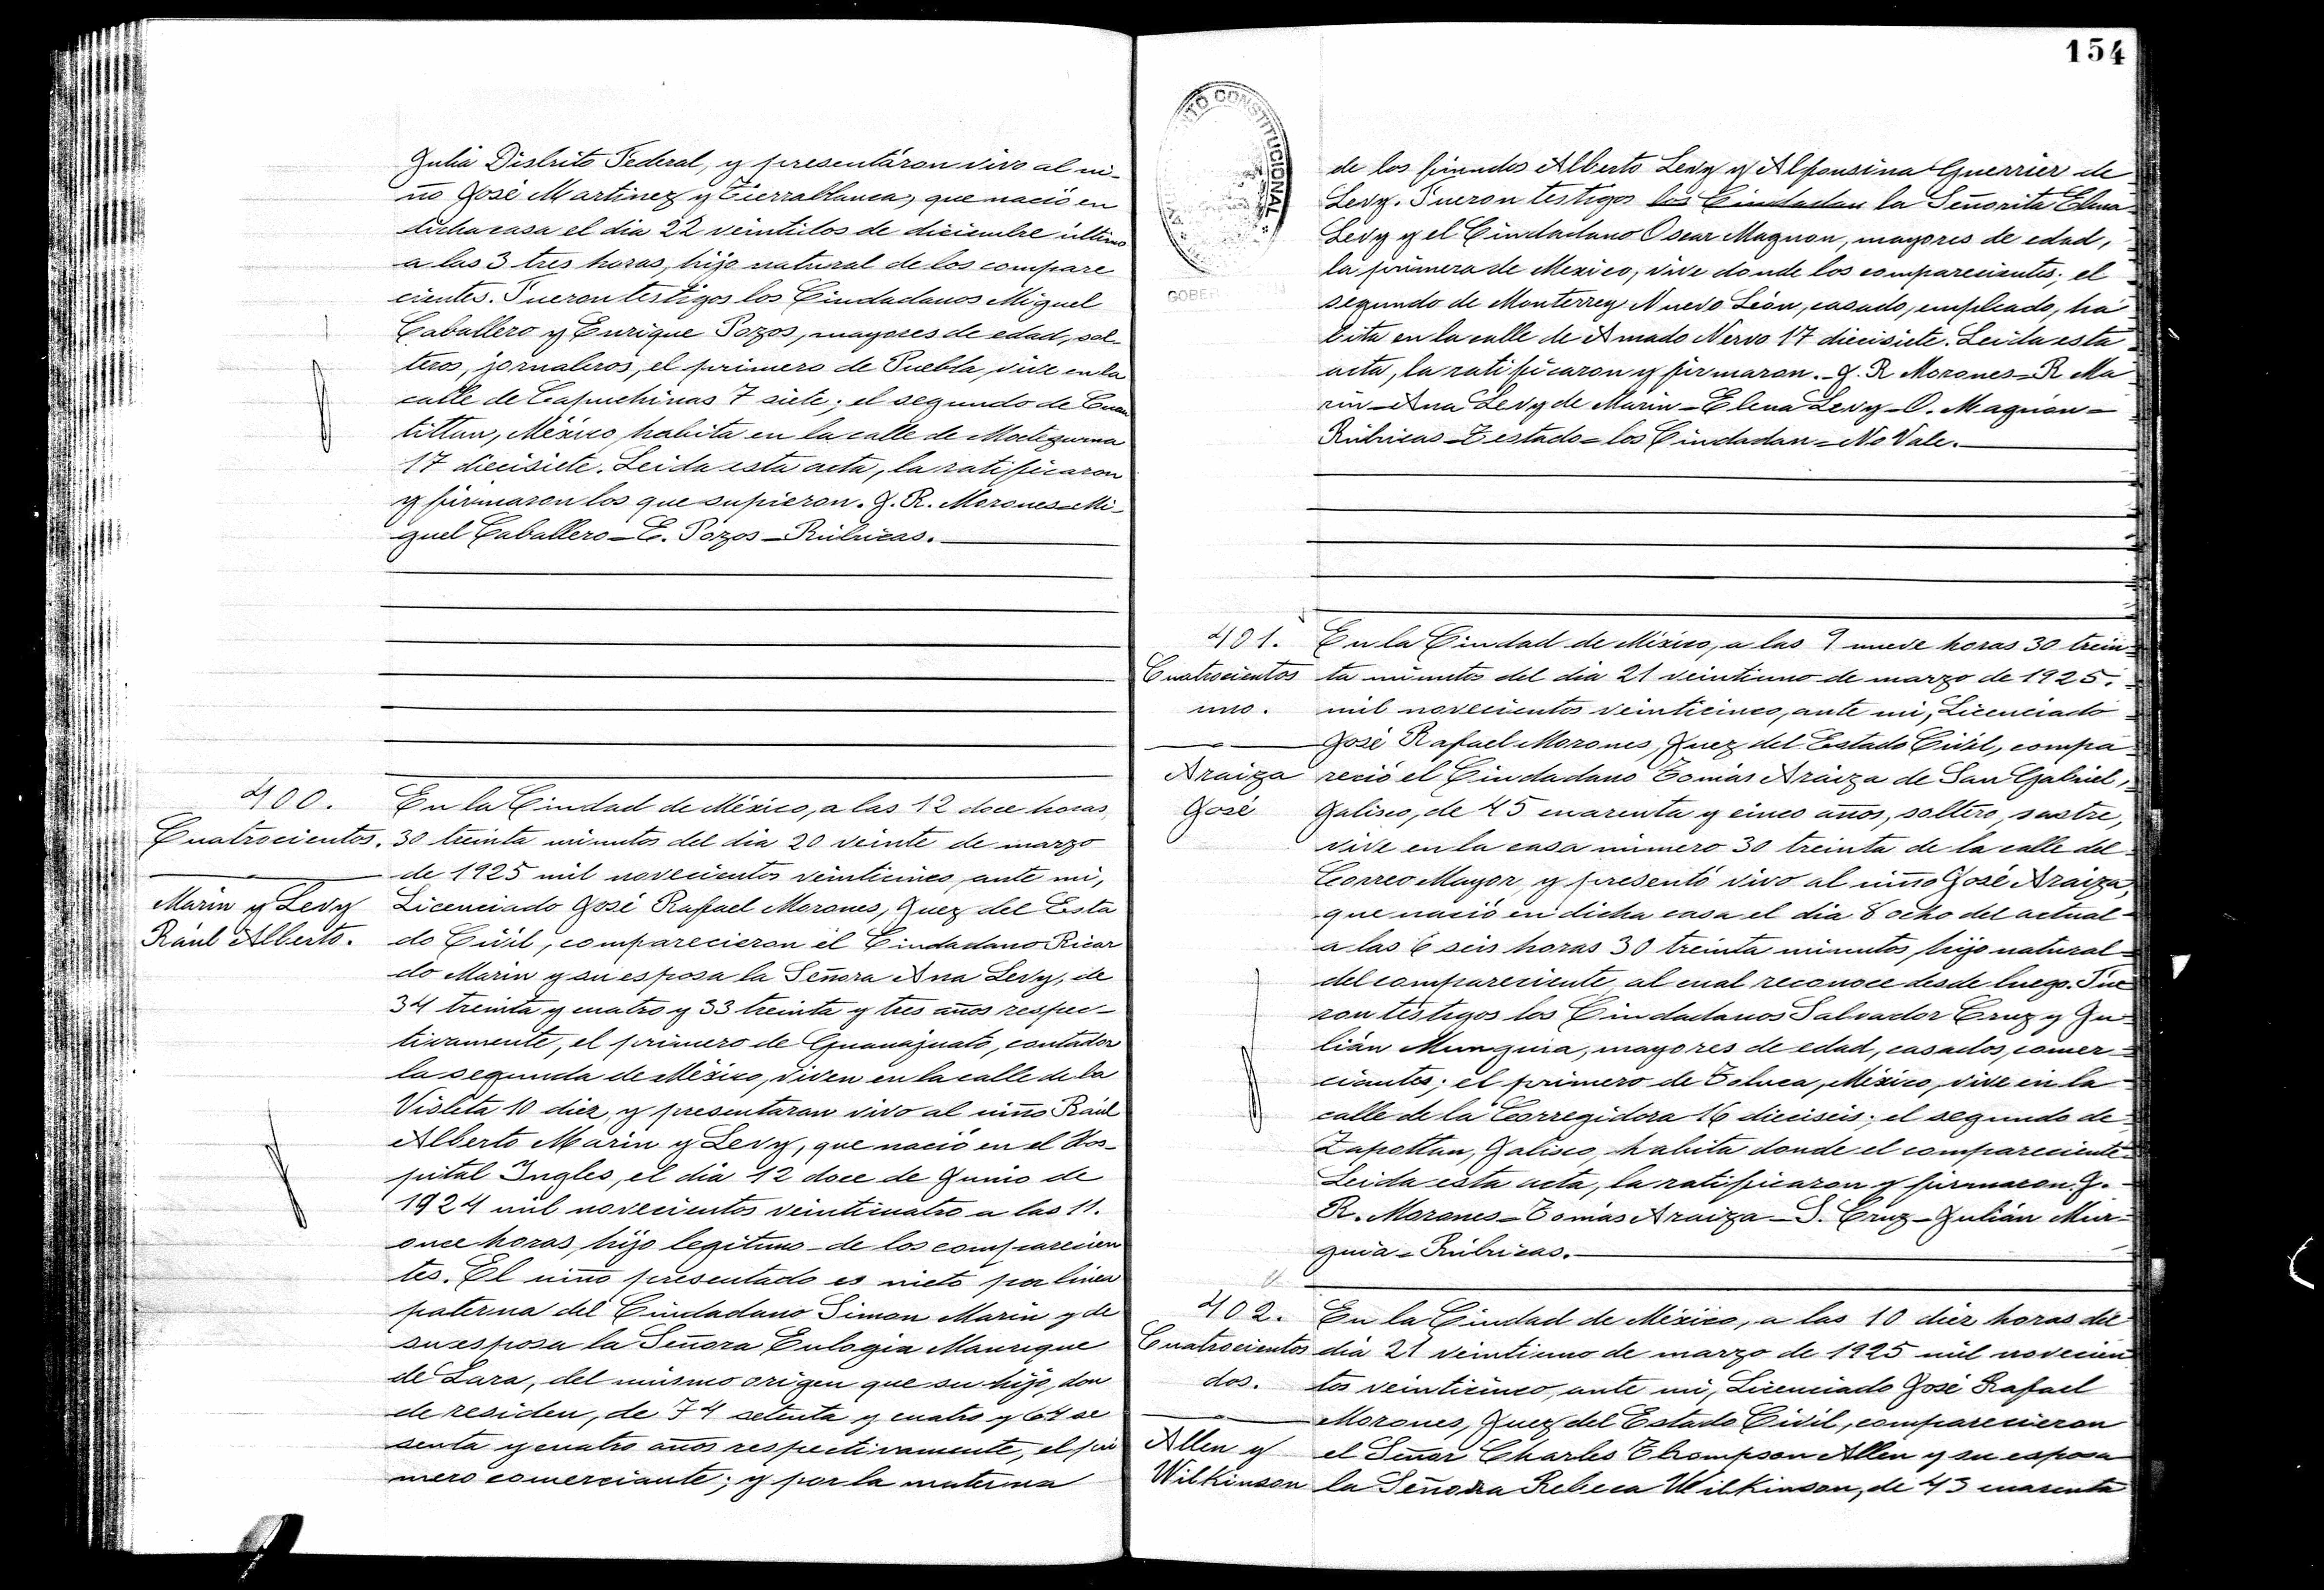 Julia Distrito Federal, y presentáron vivo al ni-
ño José Martinez y Tierrablanca, que nació en
dicha casa el dia 22 veintidos de diciembre último
a las 3 tres horas, hijo natural de los compare
cientes. Fueron testigos los Ciudadanos Miguel
Caballero y Enrique Pozos, mayores de edad, sol-
teros, jornaleros, el primero de Puebla, vive en la
calle de Capuchinas 7 siete; el segundo de Cuau
titlan, México, habita en la calle de Moctezuma
17 diecisiete. Leida esta acta, la ratificaron
y firmaron los que supieron. J. R. Morones=Mi-
guel Caballero=E. Pozos=Rúbricas.
400.
Cuatrocientos.
Marin y Levy
Rául Alberto.
En la Ciudad de México, a las 12 doce horas
30 treinta minutos del dia 20 veinte de marzo
de 1925 mil novecientos veinticinco, ante mi,
Licenciado José Rafael Morones, Juez del Esta
do Civil, comparecieron el Ciudadano Ricar
do Marin y su esposa la Señora Ana Levy, de
34 treinta y cuatro y 33 treinta y tres años respec-
tivamente, el primero de Guanajuato, contador
la segunda de México, viven en la calle de la
Violeta 10 diez, y presentaran vivo al niño Raúl
Alberto Marin y Levy, que nació en el Hos-
pital Ingles, el dia 12 doce de Junio de
1924 mil novecientos veinticuatro a las 11.
once horas, hijo legitimo de los comparecien
tes. El niño presentado es nieto por linea
paterna del Ciudadano Simon Marin y de
su esposa la Señora Eulogia Manrique
de Lara, del mismo origen que su hijo, don
de residen, de 74 setenta y cuatro y 64 se
senta y cuatro años respectivamente, el pri
mero comerciante; y por la materna
154
NTO CONSTITUCIONAL
GOBER
de los finados Alberto Levy y Alfonsina Guerrier de
Levy. Fueron testigos los Ciudadan la Señorita Elena
Levy y el Ciudadano Oscar Magnon, mayores de edad,
la primera de Mexico, vive donde los comparecientes; el
segundo de Monterrey Nuevo León, casado, empleado, ha
bita en la calle de Amado Nervo 17 diecisiete. Leida esta
acta, la ratificaron y firmaron.=J. R Morones=R Ma
rin=Ana Levy de Marin=Elena Levy=O. Magnon=
Rúbricas=Testado=los Ciudadan=No Vale.
401.
Cuatrocientos
uno.
Araiza
José
En la Ciudad de México, a las 9 nueve horas 30 trein-
ta minutos del dia 21 veintiuno de marzo de 1925.
mil novecientos veinticinco, ante mi, Licenciado
José Rafael Morones, Juez del Estado Civil, compa
reció el Ciudadano Tomás Aráiza de San Gabriel,
Jalisco, de 45 cuarenta y cinco años, soltero, sastre,
vive en la casa número 30 treinta de la calle del
Correo Mayor, y presentó vivo al niño José Araiza,
que nació en dicha casa el dia 8 ocho del actual
a las 6 seis horas 30 treinta minutos, hijo natural
del compareciente, al cual reconoce desde luego. Fue
ron testigos los Ciudadanos Salvador Cruz y Ju
lián Munguia, mayores de edad, casados, comer-
ciantes; el primero de Toluca, México, vive en la
calle de la Corregidora 16 dieciseis; el segundo de
Zapotlan, Jalisco, habita donde el compareciente.
Leida esta acta, la ratificaron y firmaron. J.
R. Morones=Tomás Araiza=S. Cruz=Julián Mur-
guia=Rúbricas.
402.
Cuatrocientos
dos.
Allen y
Wilkinson
En la Ciudad de México, a las 10 diez horas del
dia 21 veintiuno de marzo de 1925 mil novecien
tos veinticinco, ante mi, Licenciado José Rafael
Morones, Juez del Estado Civil, comparecieron
el Señor Charles Thompson Allen y su esposa
la Señora Rebeca Wilkinson, de 43 cuarenta